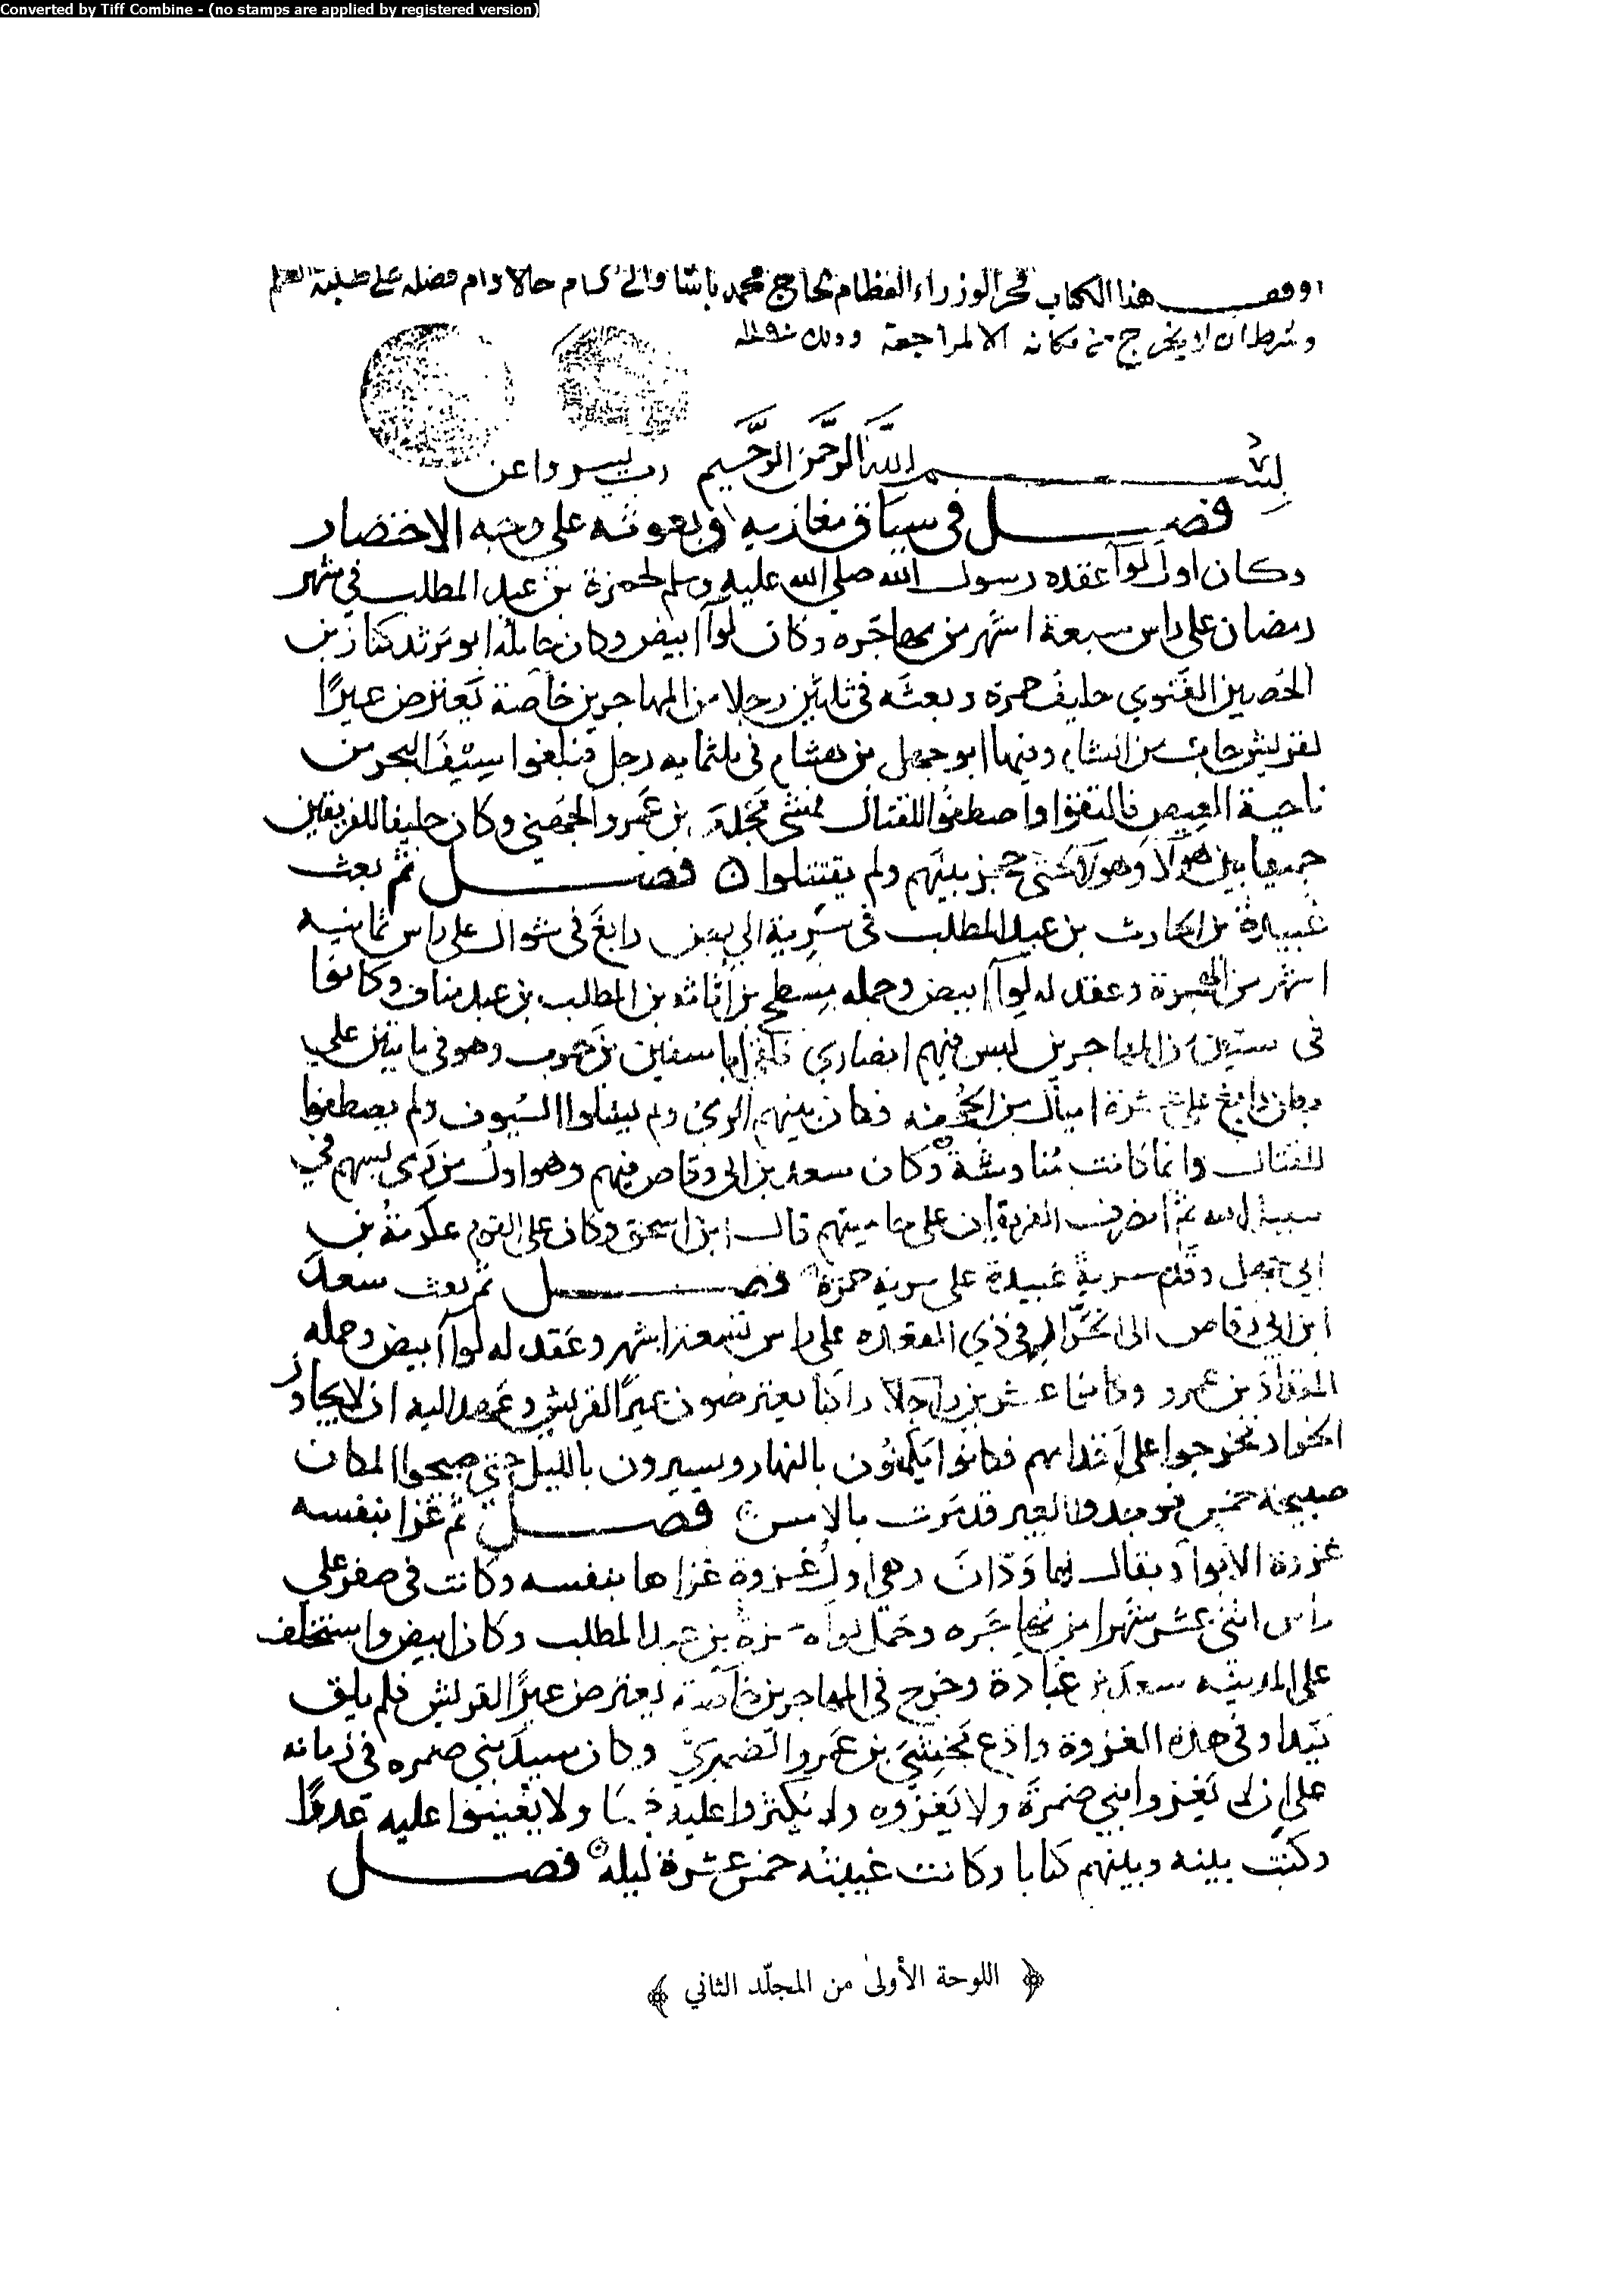 Converted by Tiff Combine - (no stamps are applied by registered version)
اوقف هذا الكتاب فخر الوزراء العظام الحاج محمد باشا والي الشام حالا دام فضله على طلبة العلم
وشرط ان لا يخرج من مكانه الا لمراجعة وذلك سنة
بسم الله الرحمن الرحيم رب يسر واعن
فصل في سياق مغازيه وبعوثه على وجه الاختصار
وكان اول لوآ عقده رسول الله صلى الله عليه وسلم لحمزة بن عبد المطلب في شهر
رمضان على راس سبعة اشهر من مهاجره وكان لوآ ابيض وكان حامله ابو مرثد كناز بن
الحصين الغنوي حليف حمزة وبعثه في ثلثين رجلا من المهاجرين خاصة يعترض عيرًا
لقريش جات من الشام وفيها ابو جهل بن هشام في ثلثمايه رجل فبلغوا سيف البحر من
ناحية العيص فالتقوا واصطفوا للقتال فمشى مجدي بن عمرو الجهني وكان حليفا للفريقين
جميعا بين هولآ وهولآ حتى حجز بينهم ولم يقتتلوا فصل ثم بعث
عبيدة بن الحارث بن عبد المطلب في سرية الى بطن رابغ في شوال على راس ثمانيه
اشهر من الهجرة وعقد له لوآ ابيض وحمله مسطح بن اثاثه بن المطلب بن عبد مناف وكانوا
في ستين من المهاجرين ليس فيهم انصاري فلقي ابا سفين بن حرب وهو في مايتين على
بطن رابغ على عشرة اميال من الجحفه فكان بينهم الرمي ولم يسلوا السيوف ولم يصطفوا
للقتال وانما كانت مناوشة وكان سعد بن ابي وقاص فيهم وهو اول من رمى بسهم في
سبيل الله ثم انصرف الفريقان على حاميتهم قال ابن اسحق وكان على القوم عكرمة بن
ابي جهل وقدم سرية عبيدة على سرية حمزة فصل ثم بعث سعد
ابن ابي وقاص الى الخرّار في ذي القعده على راس تسعة اشهر وعقد له لوآ ابيض وحمله
المقداد بن عمرو وكانوا عشرين راكبا يعترضون عيرًا لقريش وعهد اليه ان لا يجاوز
الخرار فخرجوا على اقدامهم فكانوا يكمنون بالنهار ويسيرون بالليل حتى صبحوا المكان
صبيحة خمس فوجدوا العير قد مرت بالامس فصل ثم غزا بنفسه
غزوة الابوآ ويقال لها وَدّانَ وهي اول غزوة غزاها بنفسه وكانت في صفر على
راس اثنى عشر شهرا من مهاجره وحمل لوآه حمزة بن عبد المطلب وكان ابيض واستخلف
على المدينه سعد بن عبادة وخرج في المهاجرين خاصة يعترض عيرًا لقريش فلم يلق
كيدا وفي هذه الغزوة وادع مخشي بن عمرو الضمري وكان سيد بني ضمره في زمانه
على ان لا يغزوا بني ضمرة ولا يغزوه ولا يكثروا عليه جمعا ولا يعينوا عليه عدوًا
وكتب بينه وبينهم كتابا وكانت غيبته خمس عشرة ليله فصل
﴿ اللوحة الأولى من المجلّد الثاني ﴾